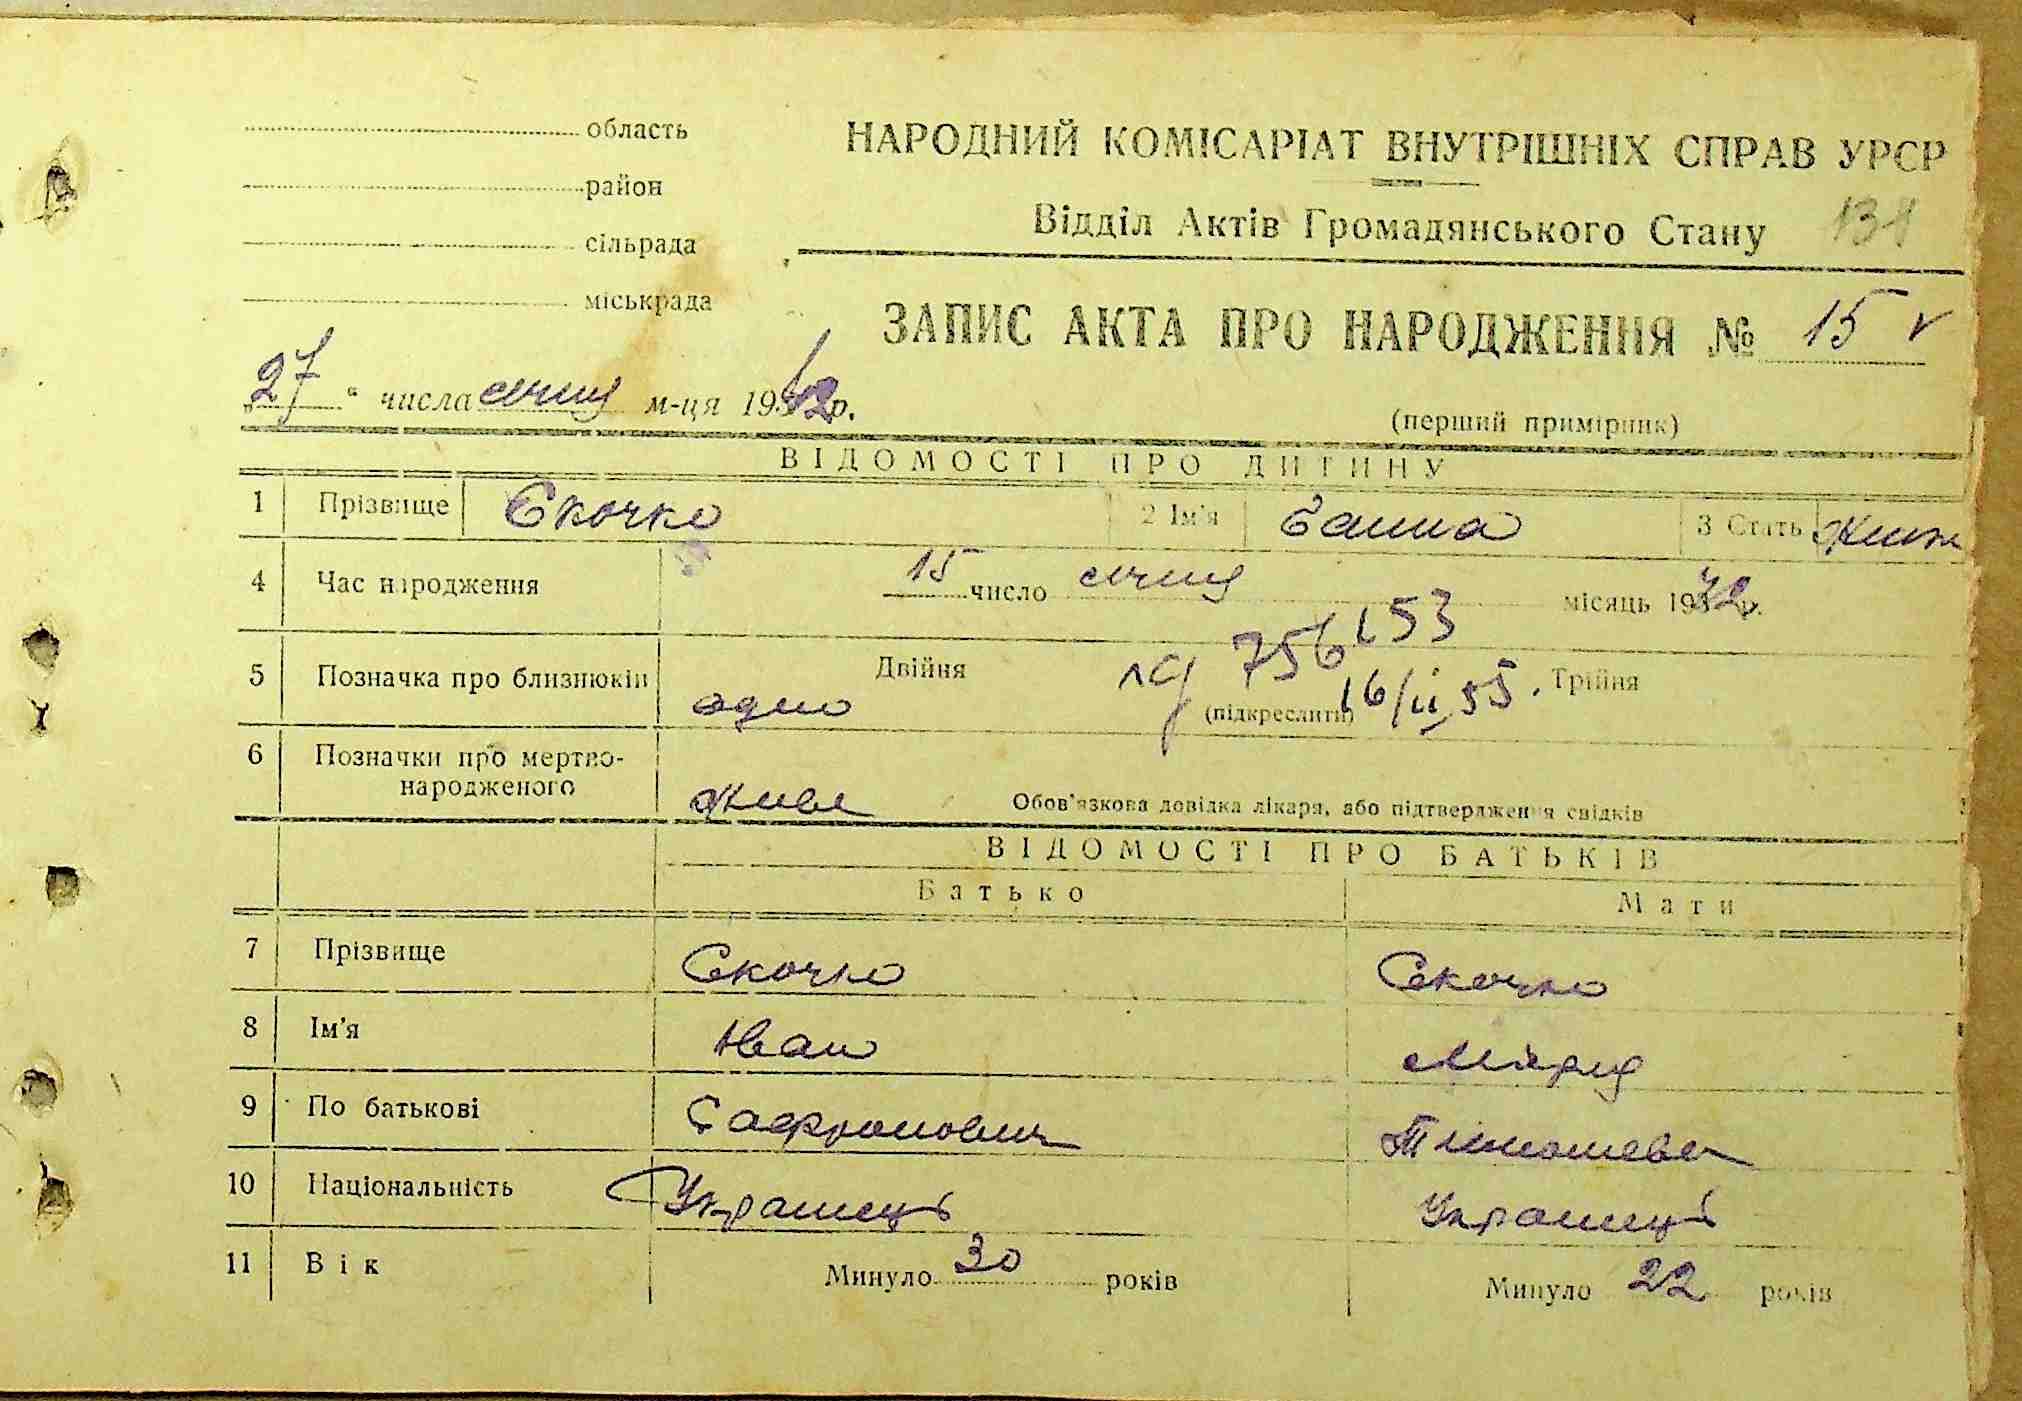 область
район
сільрада
міськрада
НАРОДНИЙ КОМІСАРІАТ ВНУТРІШНІХ СПРАВ УРСР
Відділ Актів Громадянського Стану 131
ЗАПИС АКТА ПРО НАРОДЖЕННЯ № 15 v
„27“ числа січня м-ця 1942р.
(перший примірник)
ВІДОМОСТІ ПРО ДИТИНУ
1 Прізвище Скочко 2 Ім'я Ганна 3 Стать жінж
4 Час народження 15 число січня місяць 1942р.
5 Позначка про близнюків одно Двійня (підкреслити) Трійня
756153
16/II 55.
6 Позначки про мертво-
народженого живе Обов'язкова довідка лікаря, або підтвердження свідків
ВІДОМОСТІ ПРО БАТЬКІВ
Батько Мати
7 Прізвище Скочко Скочко
8 Ім'я Іван Марія
9 По батькові Сафронович Тимошева
10 Національність Украінець Украінець
11 Вік Минуло 30 років Минуло 22 років